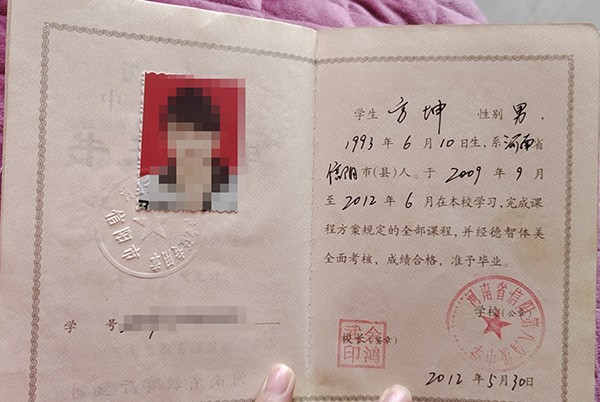 信阳市
学 号
学生 方坤 性别 男，
1993 年 6 月 10 日生，系 河南 省
信阳 市(县)人。于 2009 年 9 月
至 2012 年 6 月在本校学习，完成课
程方案规定的全部课程，并经德智体美
全面考核，成绩合格，准予毕业。
学校(公章)
河南省信阳第六高级中学
校长(签章)
2012 年 5 月 30 日